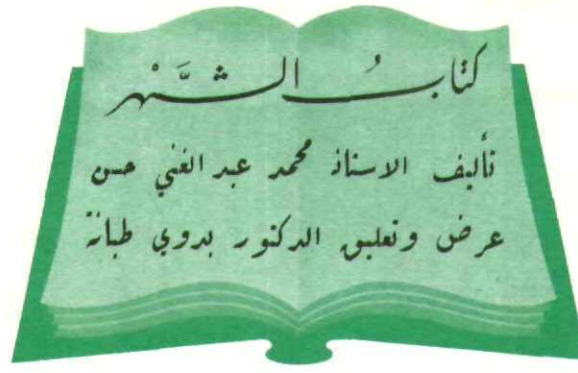 كتابُ الشَّهْر
تأليف الاستاذ محمد عبد الغني حسن
عرض وتعليق الدكتور بدوي طبانة